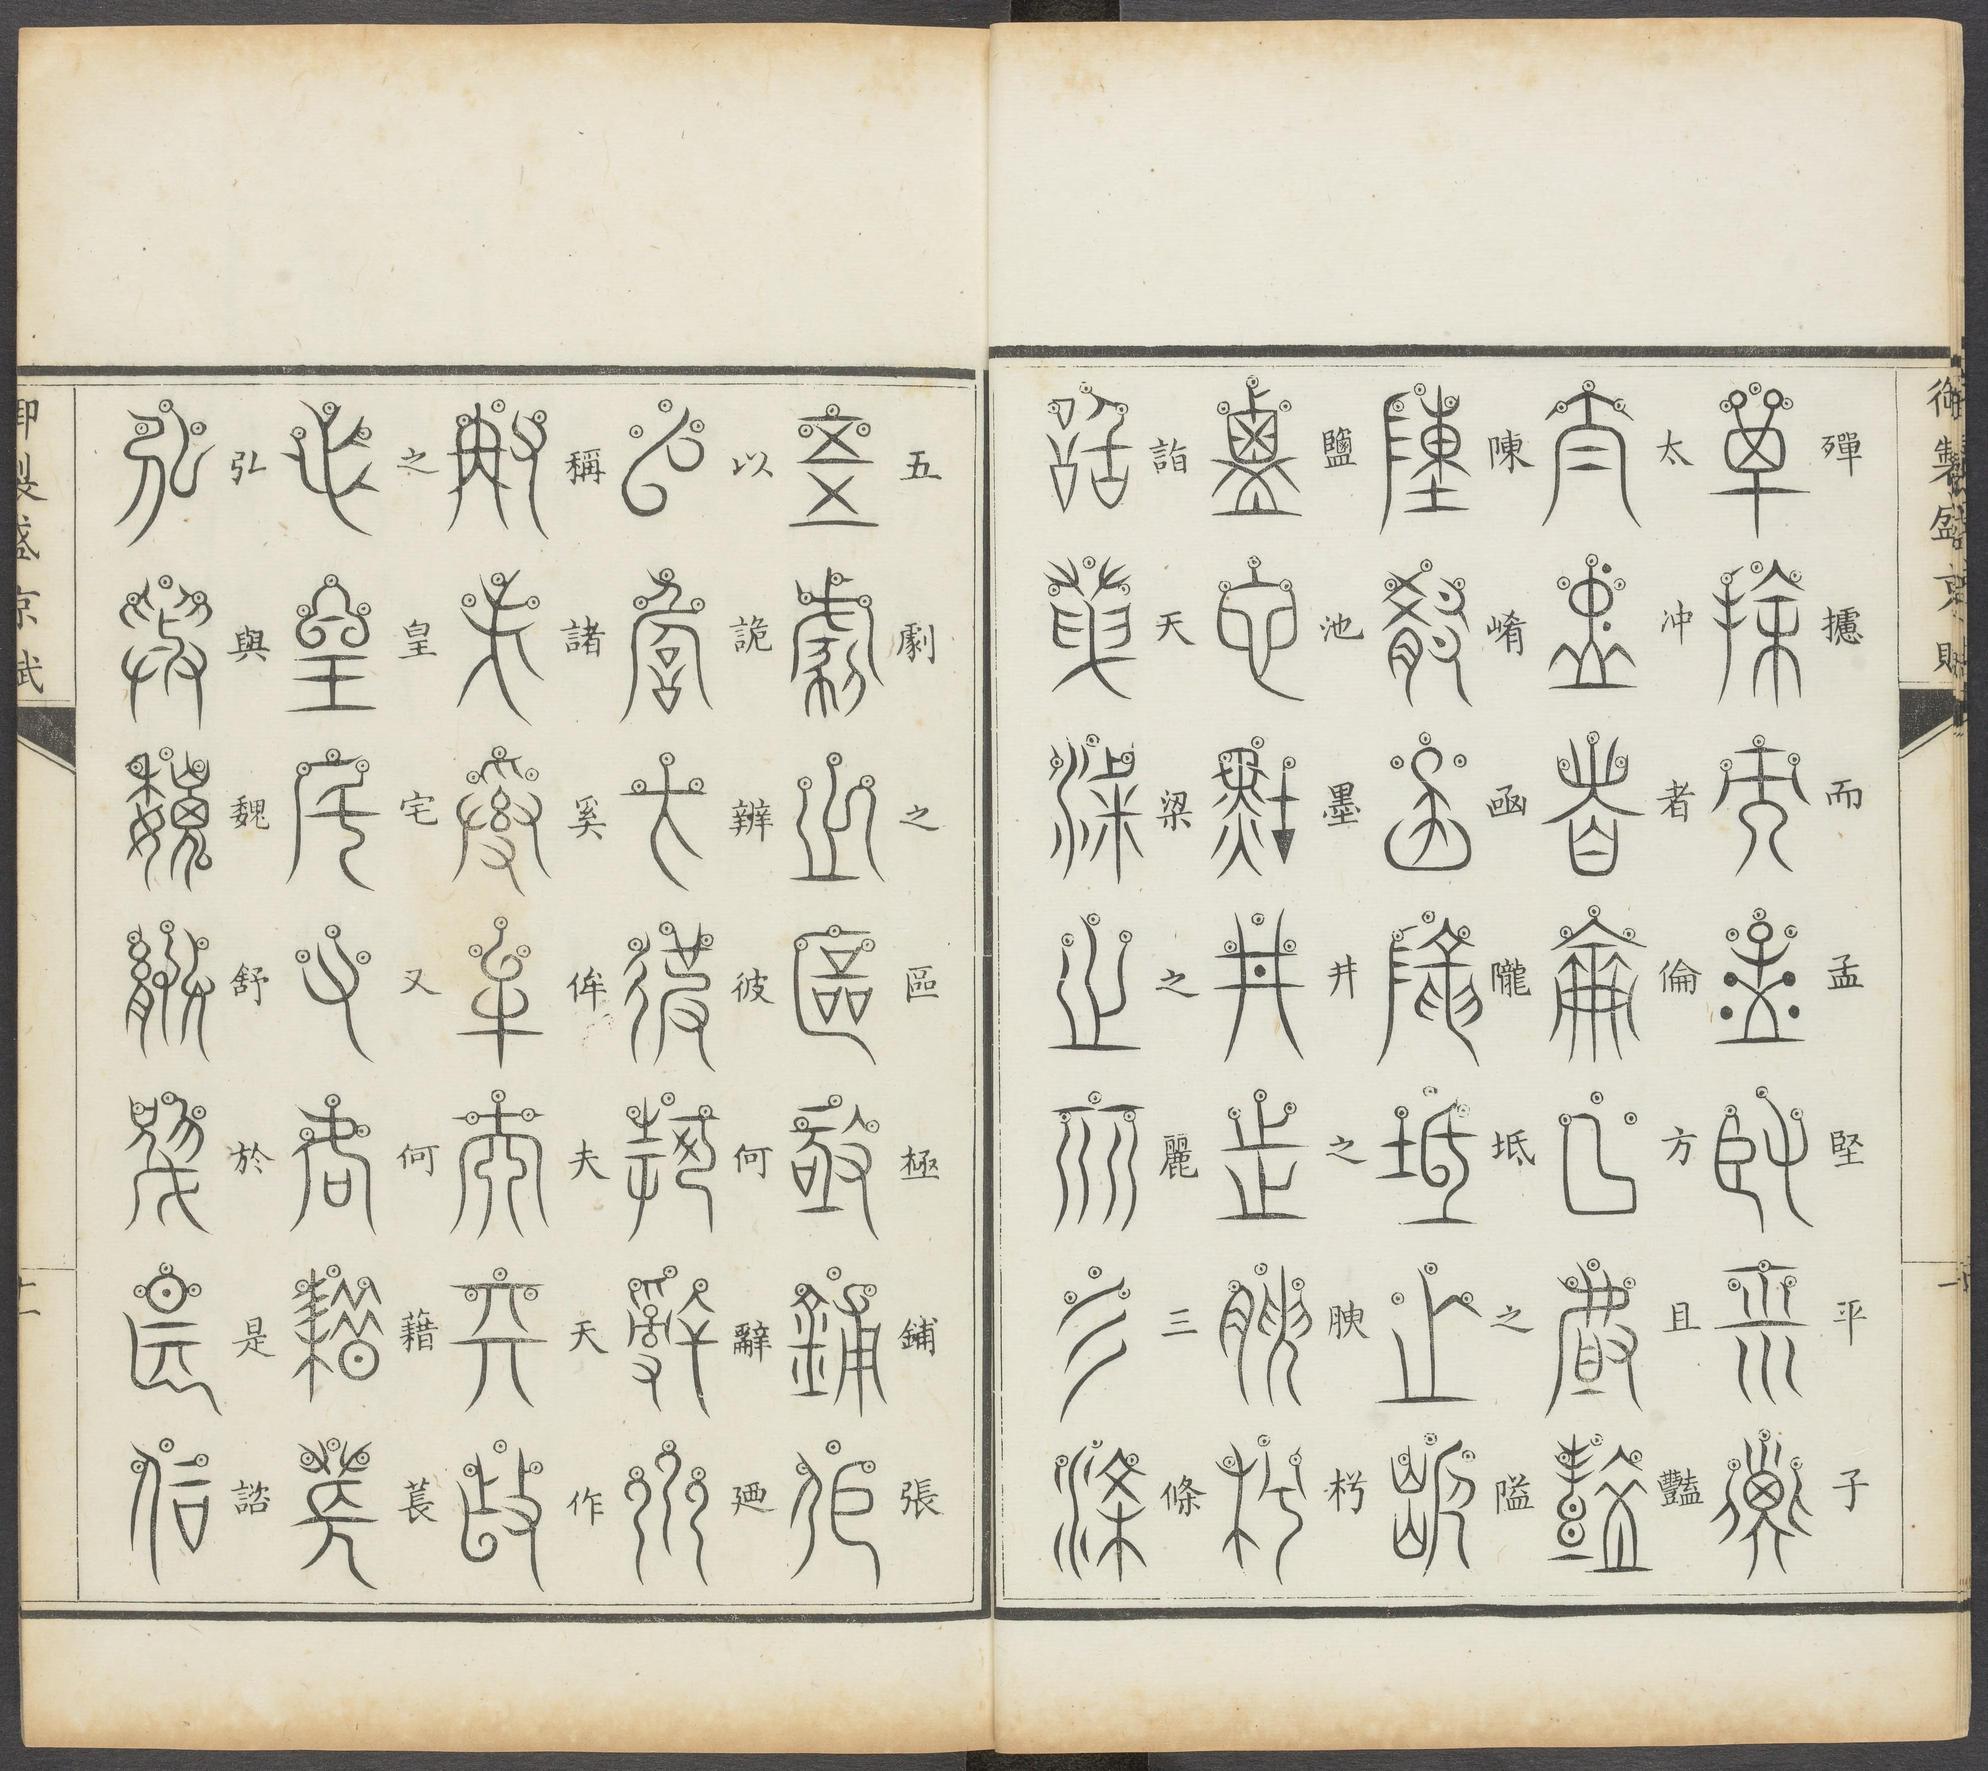 御製盛京賦
殫攄而孟堅平子
太冲者倫方且豔
陳崤函隴坻之隘
鹽池墨井之腴枍
詣天梁之麗三條
五劇之區極鋪張
以詭辨彼何辭廼
稱諸奚侔夫天作
之皇宅又何藉萇
弘與魏舒於是諮
御製盛京賦